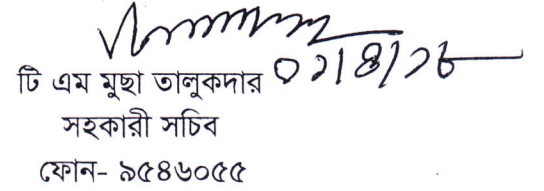 টি এম মুছা তালুকদার
সহকারী সচিব
ফোন- ৯৫৪৬০৫৫